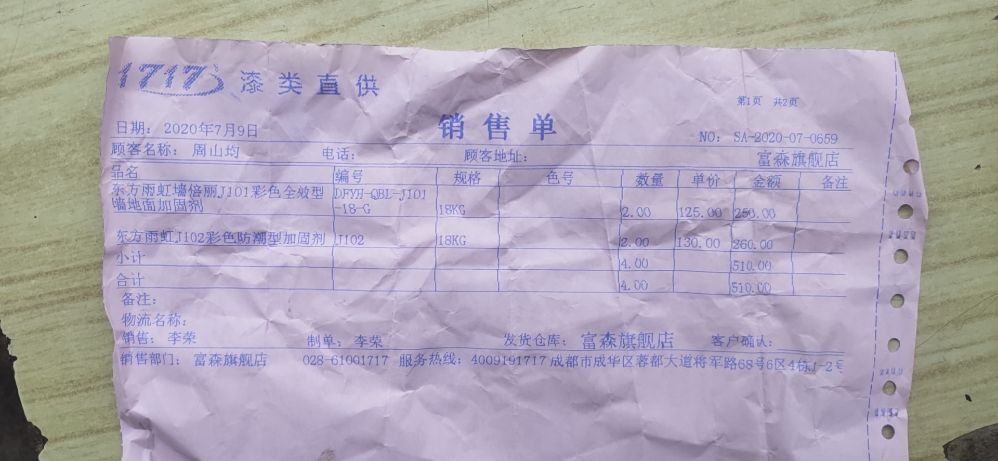 1717 漆类直供
第1页 共2页
日期: 2020年7月9日 销售单 NO: SA-2020-07-0659
顾客名称: 周山均 电话: 顾客地址: 富森旗舰店
品名 编号 规格 色号 数量 单价 金额 备注
东方雨虹墙倍丽J101彩色全效型 DFYH-QBL-J101
墙地面加固剂 -18-G 18KG 2.00 125.00 250.00
东方雨虹J102彩色防潮型加固剂 J102 18KG 2.00 130.00 260.00
小计 4.00 510.00
合计 4.00 510.00
备注:
物流名称:
销售: 李荣 制单: 李荣 发货仓库: 富森旗舰店 客户确认:
销售部门: 富森旗舰店 028-61001717 服务热线: 4009191717 成都市成华区蓉都大道将军路68号6区4栋1-2号